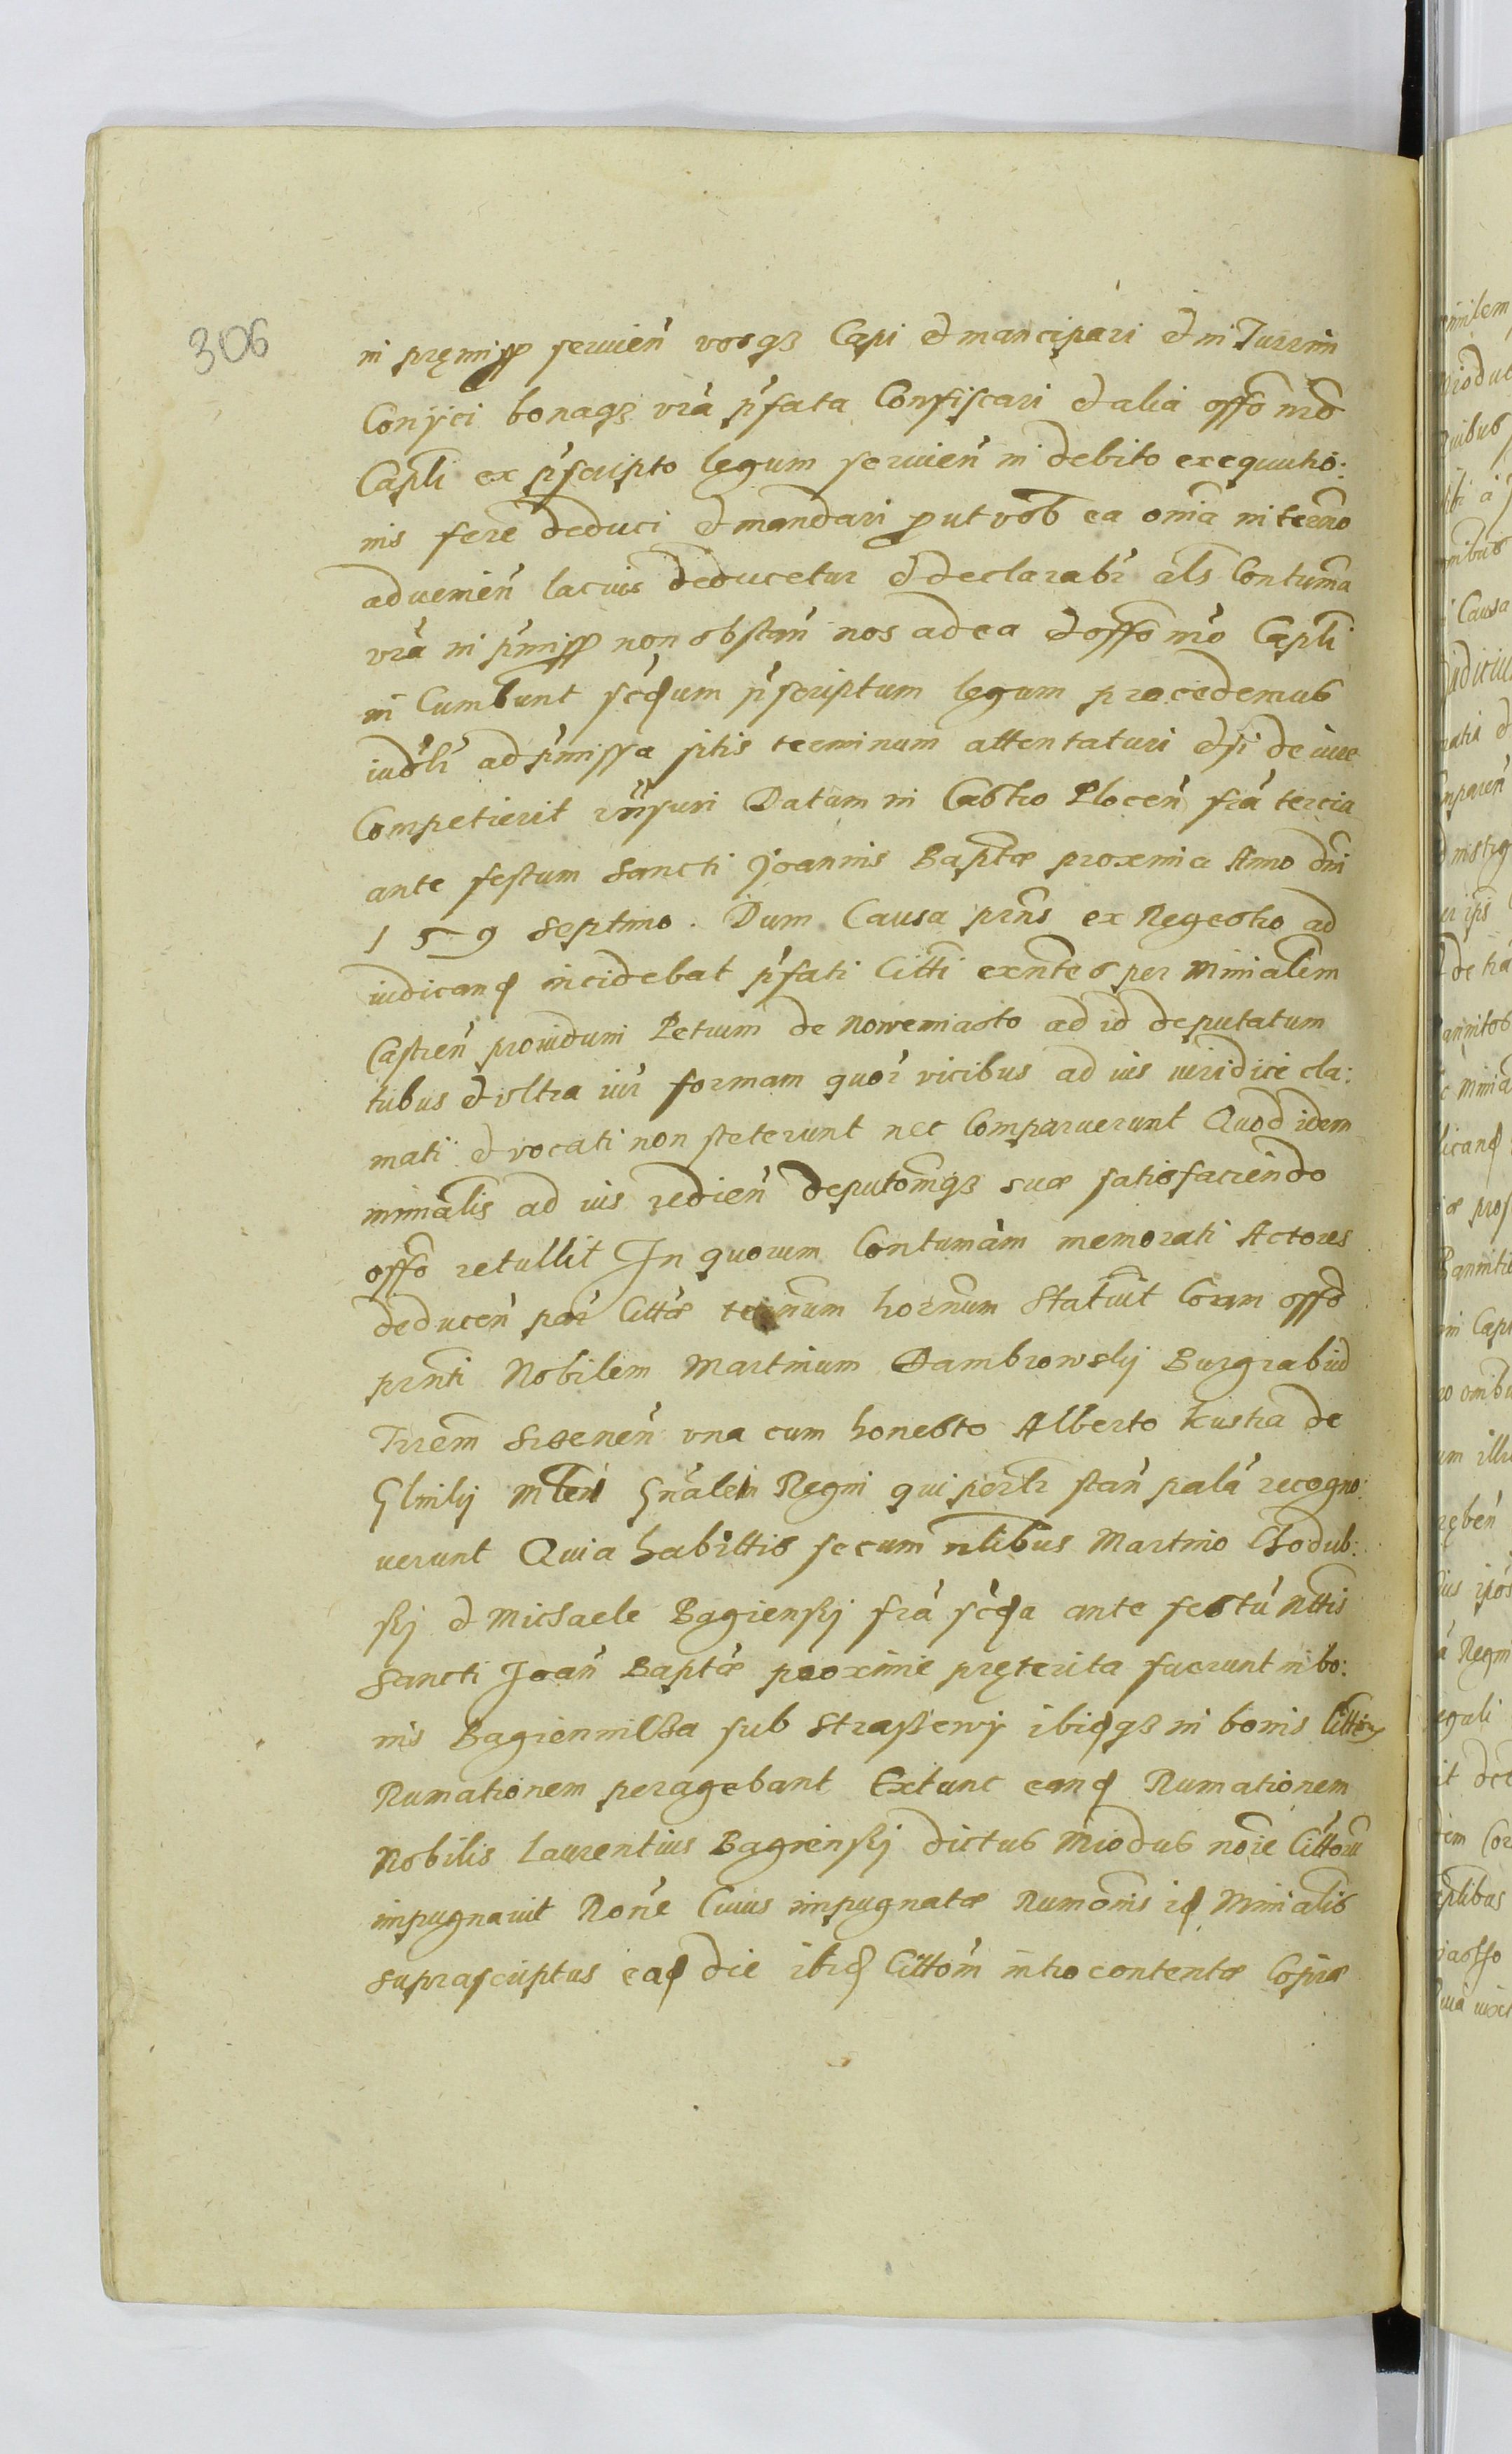 306
in pręmiss servien̄ vosq3 Capi et mancipari et in Turrim
Conÿci bonaq3 vrā p̄fata Confiscari et alia offō nrō
Capli ex p̄scripto legum servien̄ in debito exequutio:
nis fere deduci et mandari prout vob ea omīa in termo
advenien̄ lacius deducetur et declarabr̄ als Contuma
vrā in p̄miss non obstan̄ nos ad ea et offō nrō Capli
in Cumbunt scdum p̄scriptum legum procedemus
iudbr̄ ad p̄missa sitis terminum attentaturi et si de iure
Competierit rn̄suri Datum in Castro Plocen̄ frā tercia
ante festum Sancti Joannis Baptæ proxima Anno dni
159 septimo. Dum Causa prns ex Regestro ad
iudicand incidebat p̄fati Citti exntes per Minialem
Castren̄ providum Petrum de Nowemiasto ad id deputatum
tribus et ultra iur formam quor̄ vicibus ad ius iuridice cla:
mati et vocati non steterunt nec Comparuerunt Quod idem
minialis ad ius redien̄ deputomq3 suæ satisfaciendo
offō retullit In quorum Contumām memorati Actores
deducen̄ par̄ Cittæ termum hornum Statuit Coram offō
prnti Nobilem Martinum Dambrowskij Burgrabiū
Trrem Srzenen̄ una cum honesto Alberto Kustra de
Glinkij Mlem Gnālem Regni qui perlr̄ stan̄ palā recogno:
verunt Quia habittis secum nlibus Martino Chodub:
skj et Michaele Bagienskj frā scda ante festū Nttis
Sancti Joan̄ Baptæ proxime pręterita fuerunt in bo:
nis Bagiennicza sub Straszewÿ ibidq3 in bonis Cittor
Rumationem peragebant Extunc eand Rumationem
Nobilis Laurentius Bagienskj dictus Miodus noie Cittorū
impugnavit Rone Cuius impugnatæ Rumonis id Minialis
suprascriptus ead die ibid Cittom introcontentæ Copiæ